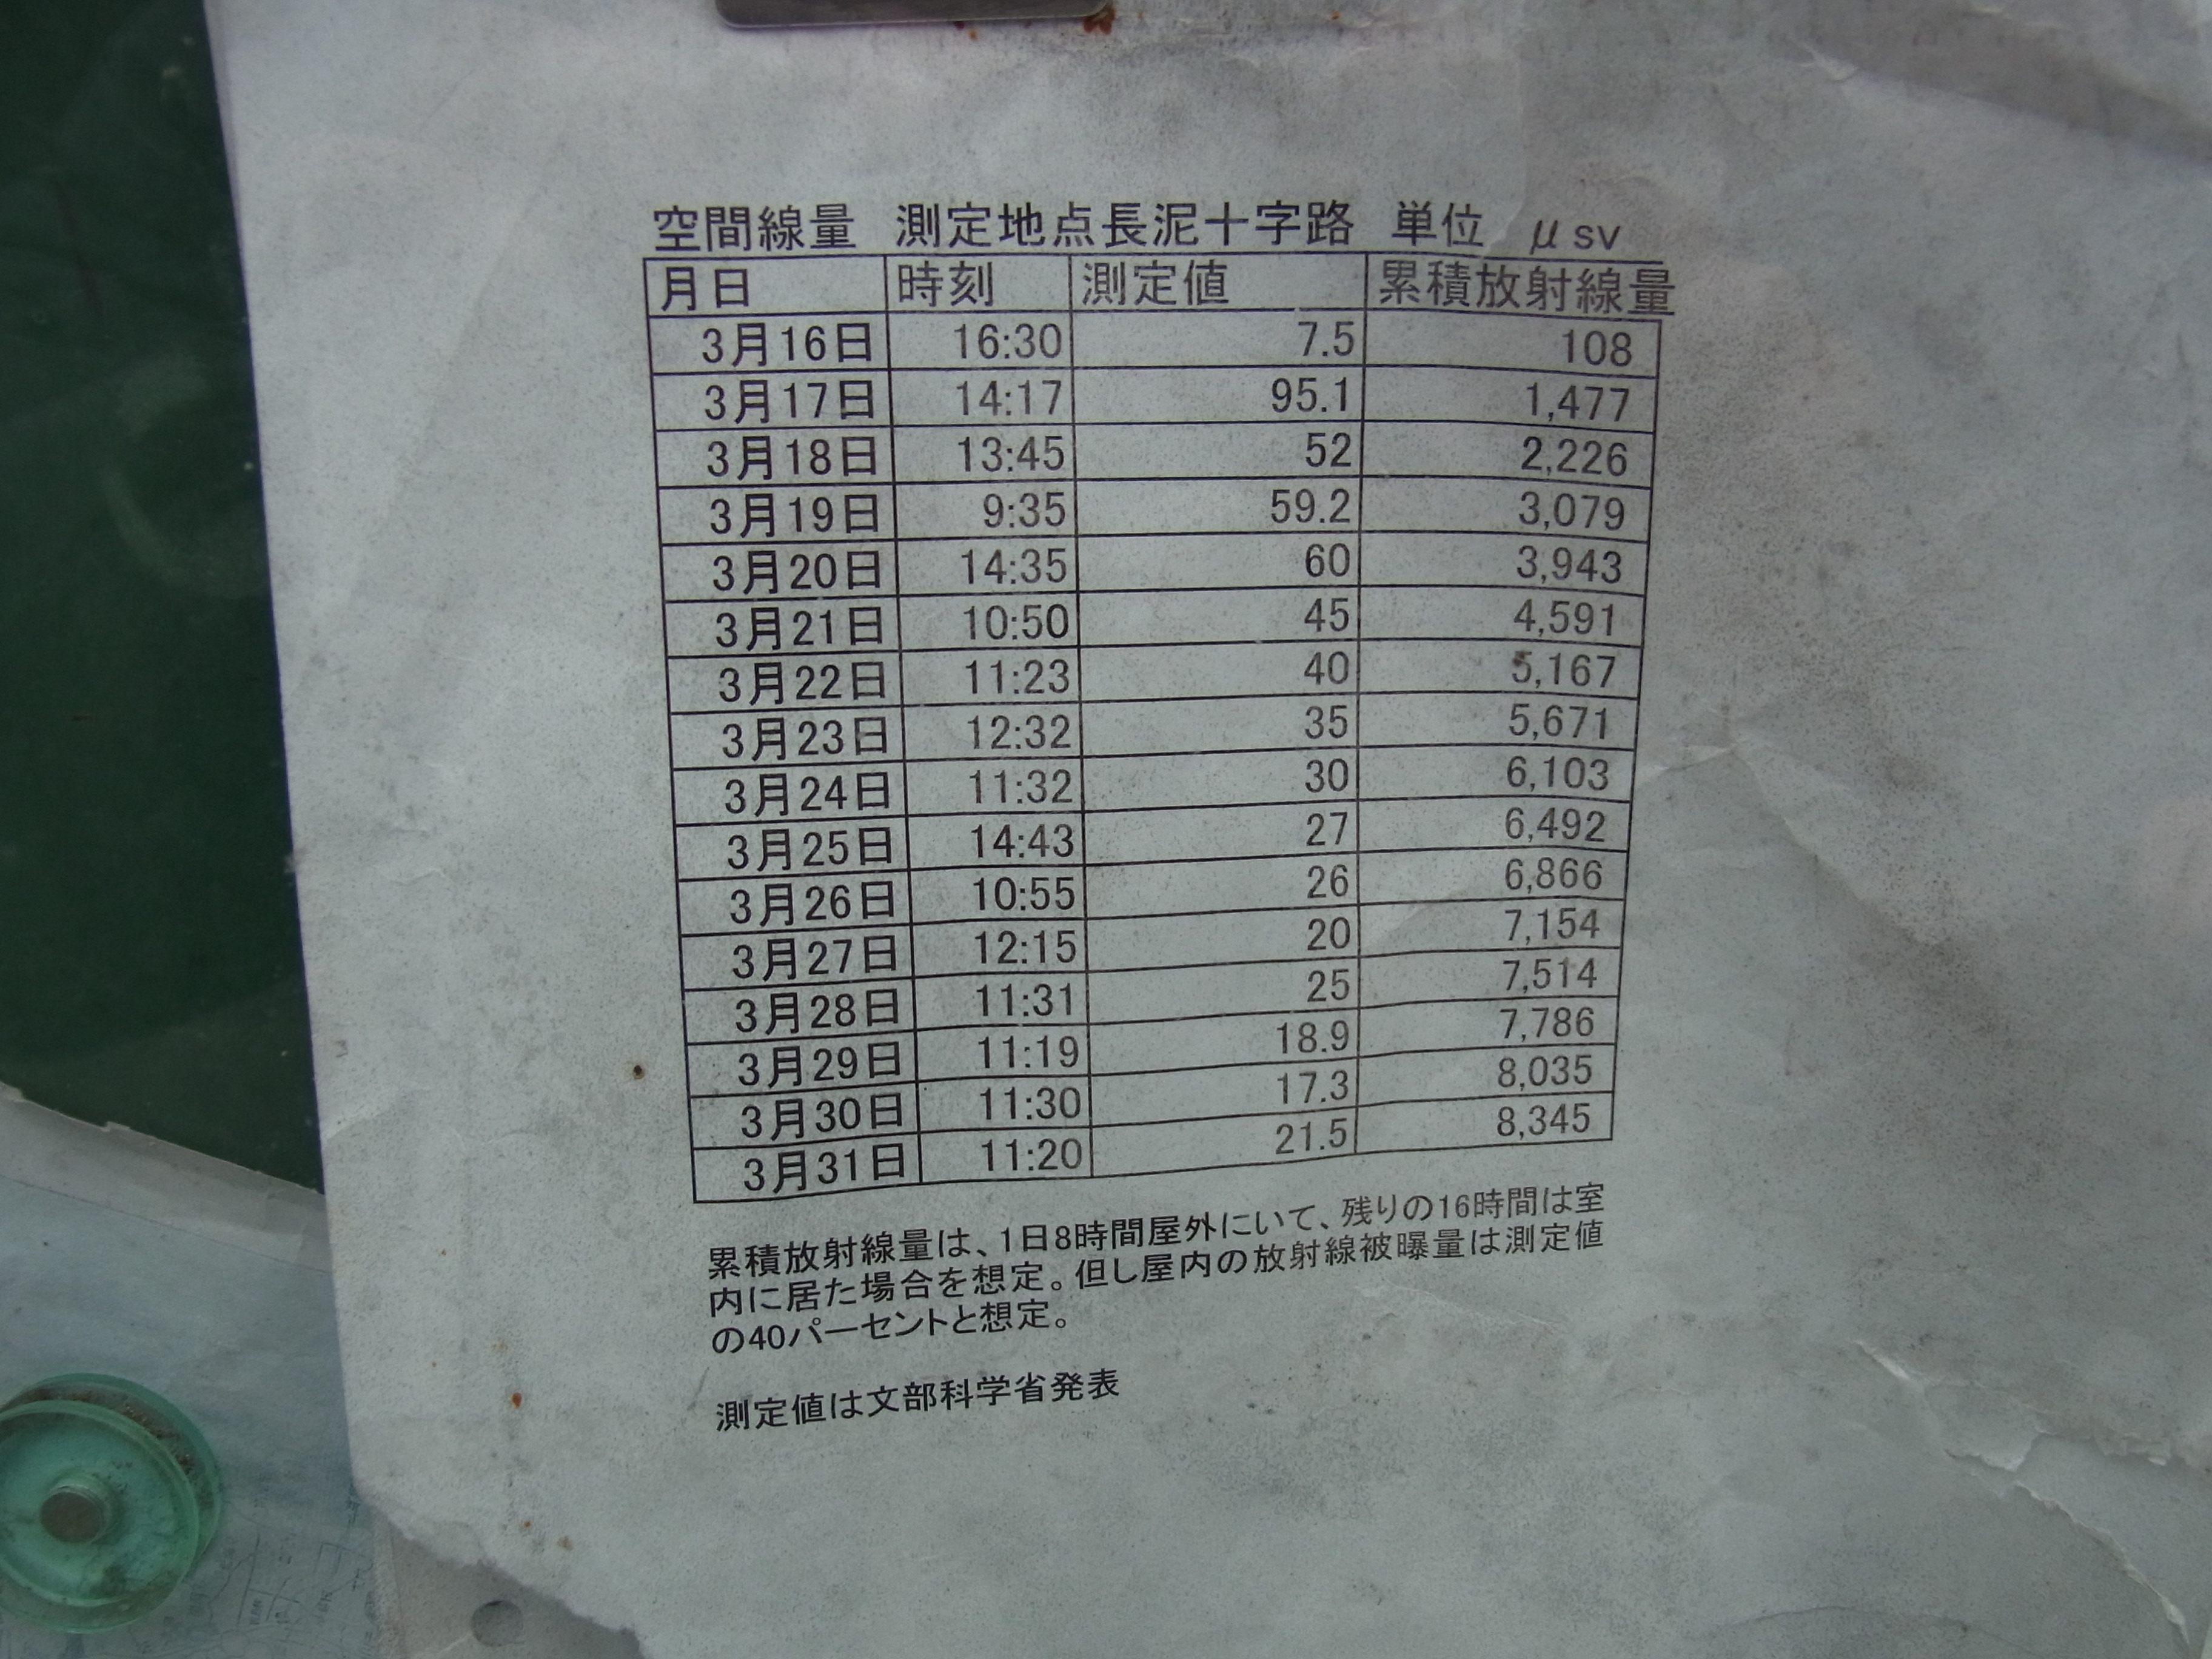 空間線量　測定地点長泥十字路　単位　μsv
月日 時刻 測定値 累積放射線量
3月16日 16:30 7.5 108
3月17日 14:17 95.1 1,477
3月18日 13:45 52 2,226
3月19日 9:35 59.2 3,079
3月20日 14:35 60 3,943
3月21日 10:50 45 4,591
3月22日 11:23 40 5,167
3月23日 12:32 35 5,671
3月24日 11:32 30 6,103
3月25日 14:43 27 6,492
3月26日 10:55 26 6,866
3月27日 12:15 20 7,154
3月28日 11:31 25 7,514
3月29日 11:19 18.9 7,786
3月30日 11:30 17.3 8,035
3月31日 11:20 21.5 8,345
累積放射線量は、1日8時間屋外にいて、残りの16時間は室
内に居た場合を想定。但し屋内の放射線被曝量は測定値
の40パーセントと想定。
測定値は文部科学省発表